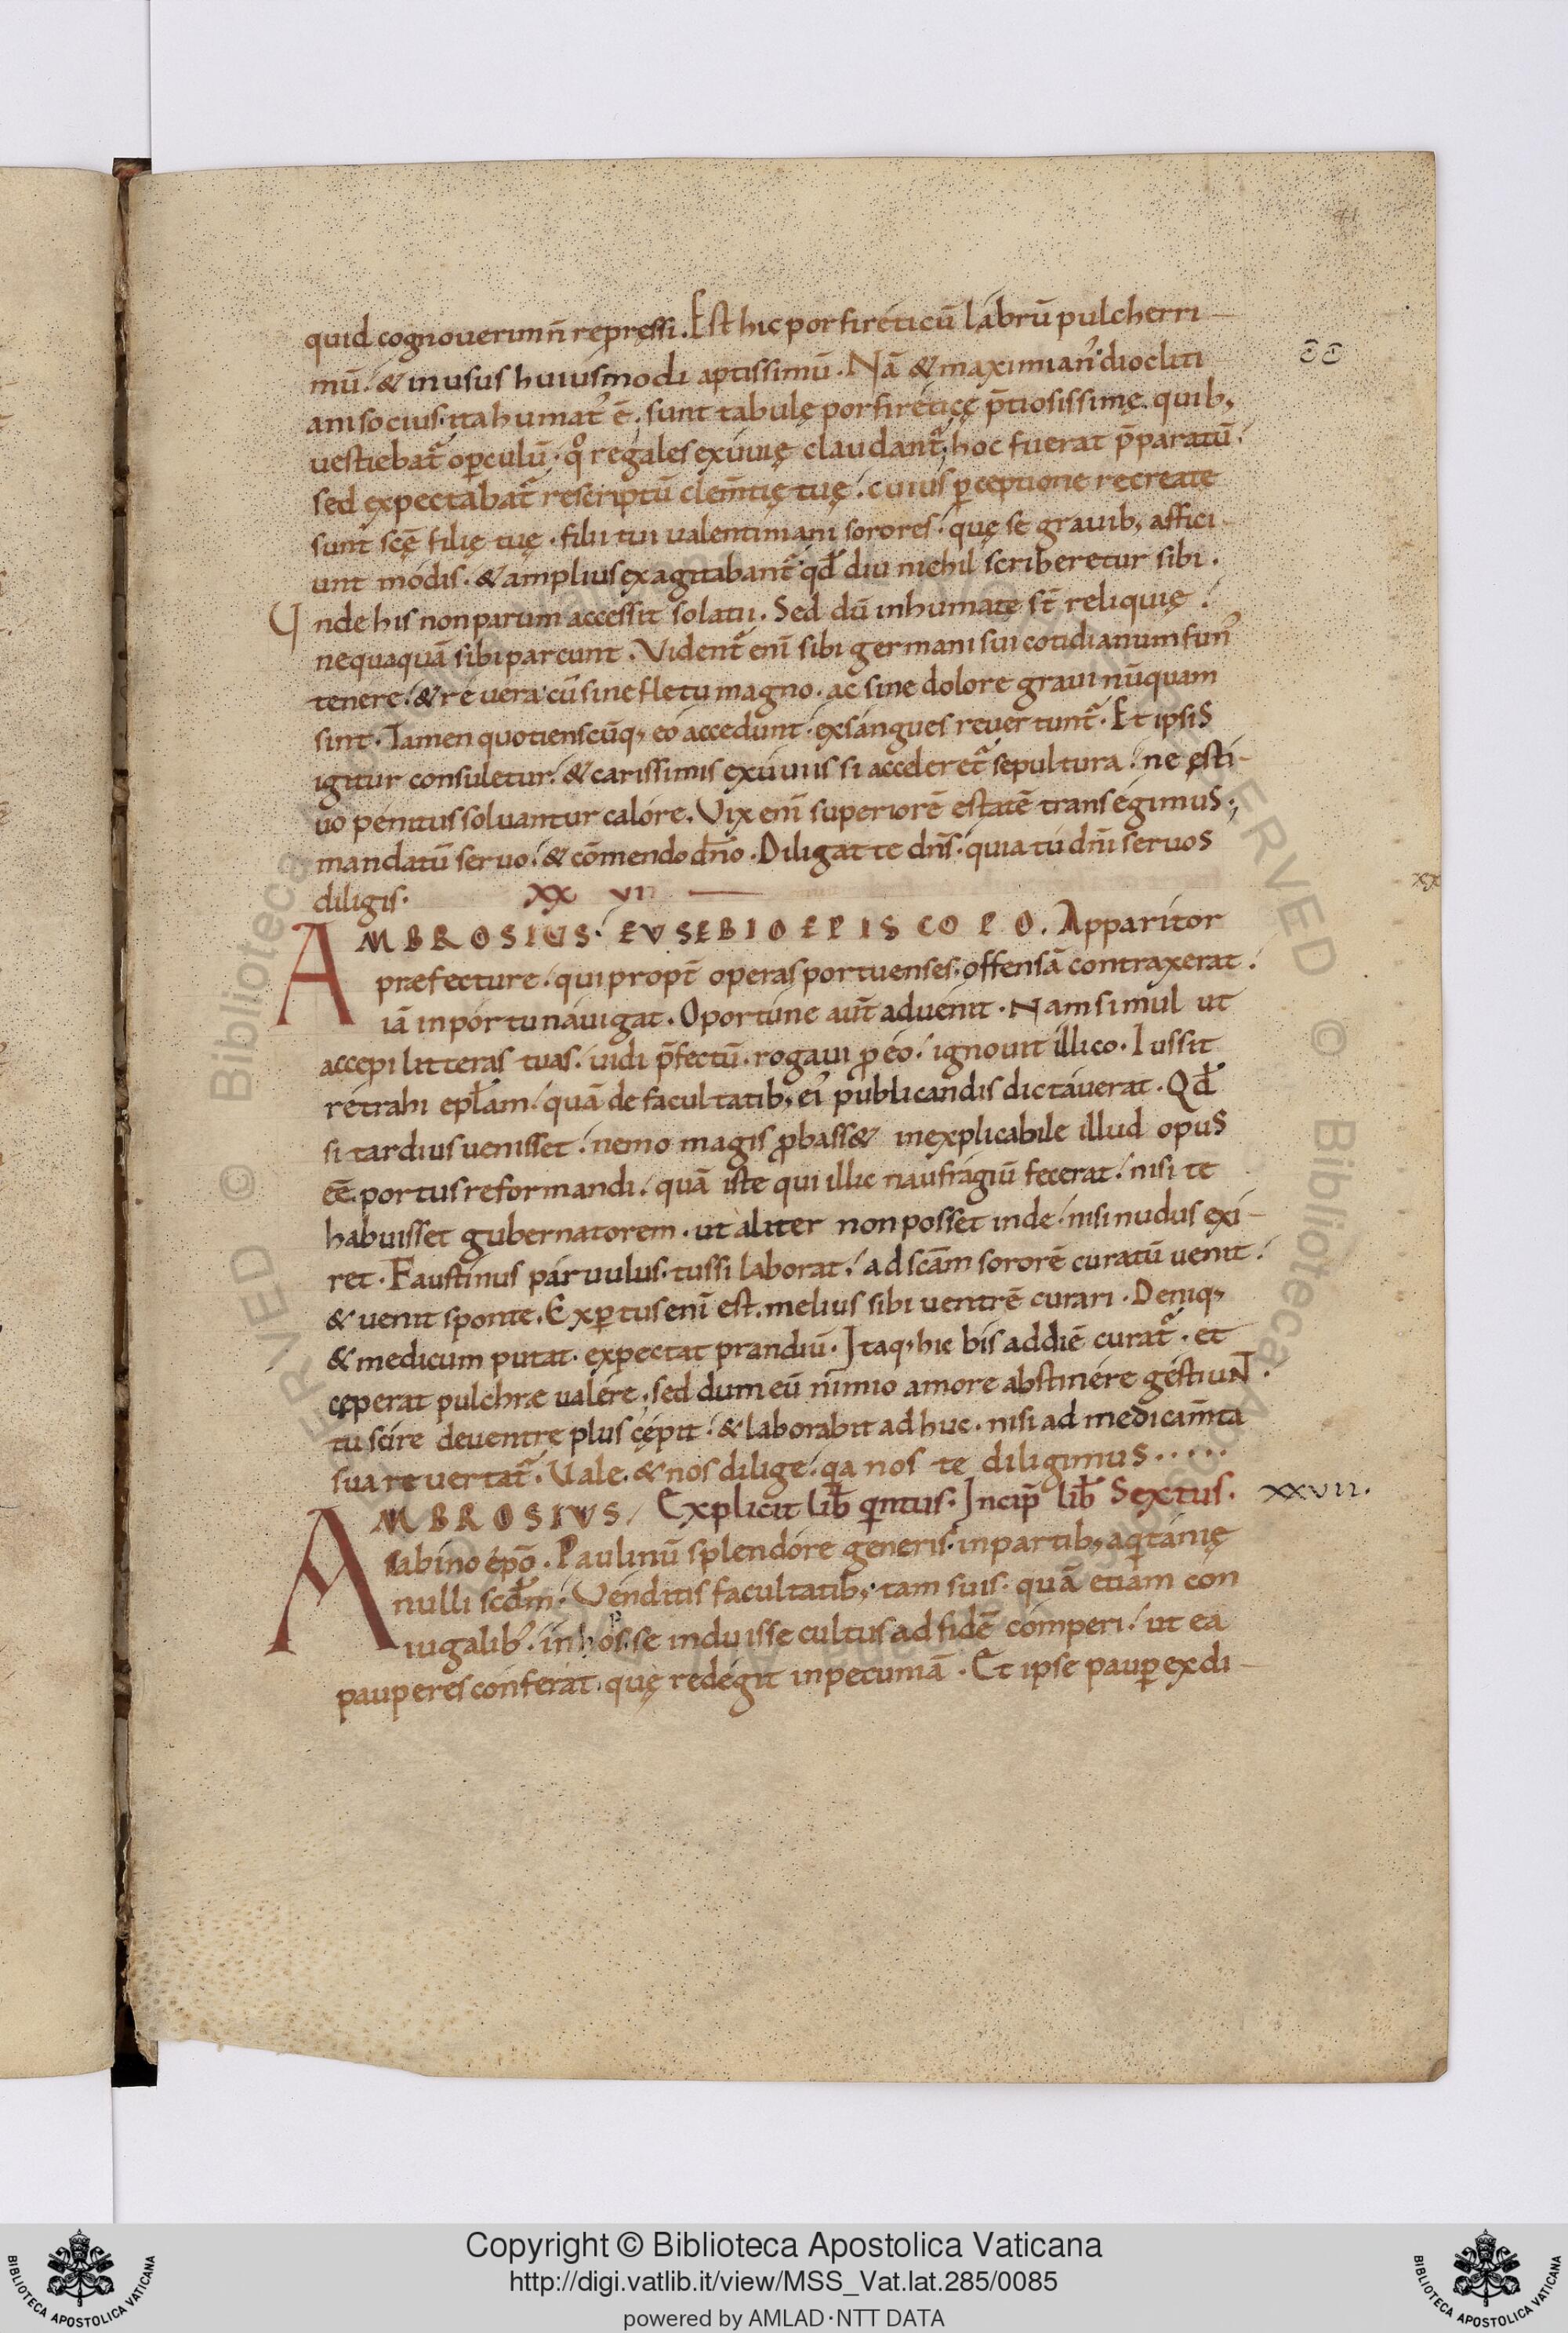 41
quid cognouerim ñ repressi. Est hic porfireticū labrū pulcherri-
mū. & in usus huiusmodi aptissimū. Nā & maximian᾽ diocliti
ani socius. ita humat᾽ ē. sunt tabulę porfireticę p̄tiosissimę quib;
uestiebat᷑ op̱culū. qͦ regales exuuię claudant᷑. hoc fuerat p̄paratū.
sed expectabat᷑ rescriptū clem̄tię tuę. cuius p̱ceptione recreate
sunt scę̄ filię tuę. filii tui ualentiniani sorores. quę se grauib; affici
unt modis. & amplius exagitabant᷑ qđ diu nichil scriberetur sibi.
Unde his non parum accessit solatii. Sed dū inhumate st̄ reliquię.
nequaquā sibi parcunt. Vident᷑ eni̅ sibi germani sui cotidianum fun᾽
tenere. & re uera cū sine fletu magno. ac sine dolore graui nūquam
sint. Tamen quotienscūq; eo accedunt. exsangues reuertunt᷑. Et ipsis
igitur consuletur. & carissimis exuuiis si acceleret᷑ sepultura. ne ęsti-
uo penitus soluantur calore. Vix eni̅ superiorē estatē transegimus.;
mandatū seruo. & cōmendo dn̄o. Diligat te dn̄s. quia tu dn̄i seruos
diligis. XX VII
AMBROSIUS. EVSEBIO EPISCOPO. Apparitor
præfecture. qui propt̄ operas portuenses. offensā contraxerat.
iā in portu nauigat. Oportune aūt aduenit. Nam simul ut
accepi litteras tuas. uidi p̄fectū. rogaui ꝓ eo. ignouit illico. Iussit
retrahi epł̄am. quā de facultatib; ei᾽ publicandis dictauerat. Qđ
si tardius uenisset. nemo magis ꝓbass& inexplicabile illud opus
eē. portus reformandi. quā iste qui illic naufragiū fecerat. nisi te
habuisset gubernatorem. ut aliter non posset inde. nisi nudus exi-
ret. Faustinus paruulus. tussi laborat. ad scām sororē curatū uenit.
& uenit sponte. Exp̱tus eni̅ est. melius sibi uentrē curari. Deniq;
& medicum putat. expectat prandiū. Itaq; hic bis ad diē curat᷑. et
cęperat pulchræ ualere. sed dum eū nimio amore abstinere gestiunt.
tuscire deuentre plus cępit. & laborabit ad huc. nisi ad medicam̄ta
sua reuertat᷑. Uale. & nos dilige. qa nos te diligimus.....
AMBROSIVS. Explicit lib̄ qintus. Incip̄ lib̄ Sextus. XXVII.
sabino epō. Paulinū splendore generis. in partib; aqitanię
nulli scđm. Venditis facultatib; tam suis. quā etiam con
iugalib᾽. in hos se induisse cultus ad fidē comperi. ut ea
pauperes conferat. quę redegit in pecuniā. Et ipse paup̱ ex di-
Copyright © Biblioteca Apostolica Vaticana
http://digi.vatlib.it/view/MSS_Vat.lat.285/0085
powered by AMLAD·NTT DATA
BIBLIOTECA APOSTOLICA VATICANA
BIBLIOTECA APOSTOLICA VATICANA